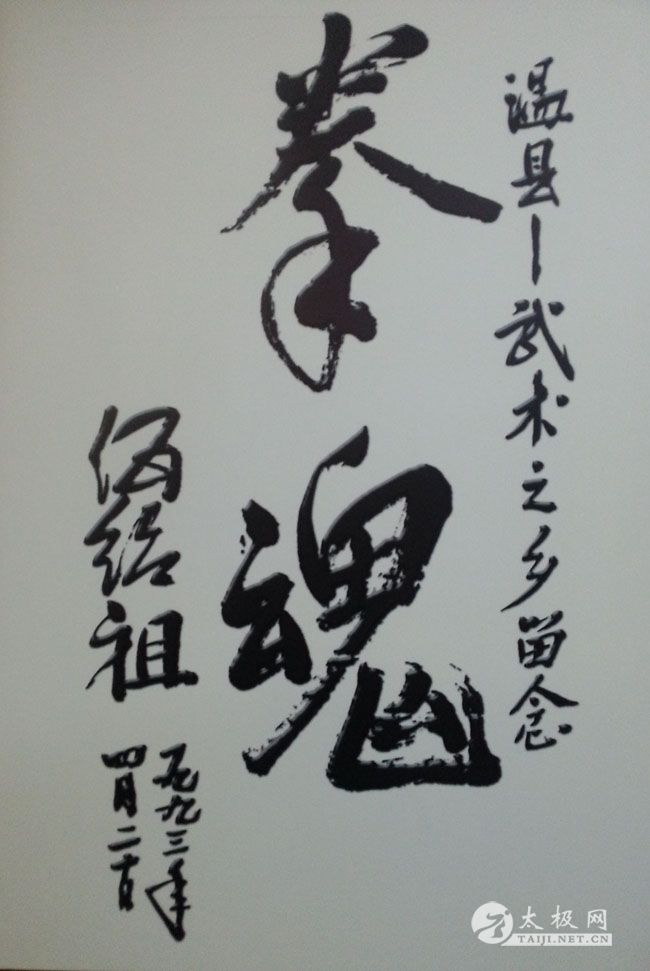 温县－武术之乡留念
拳魂
伍绍祖
一九九三年
四月二十日
太极网
TAIJI.NET.CN